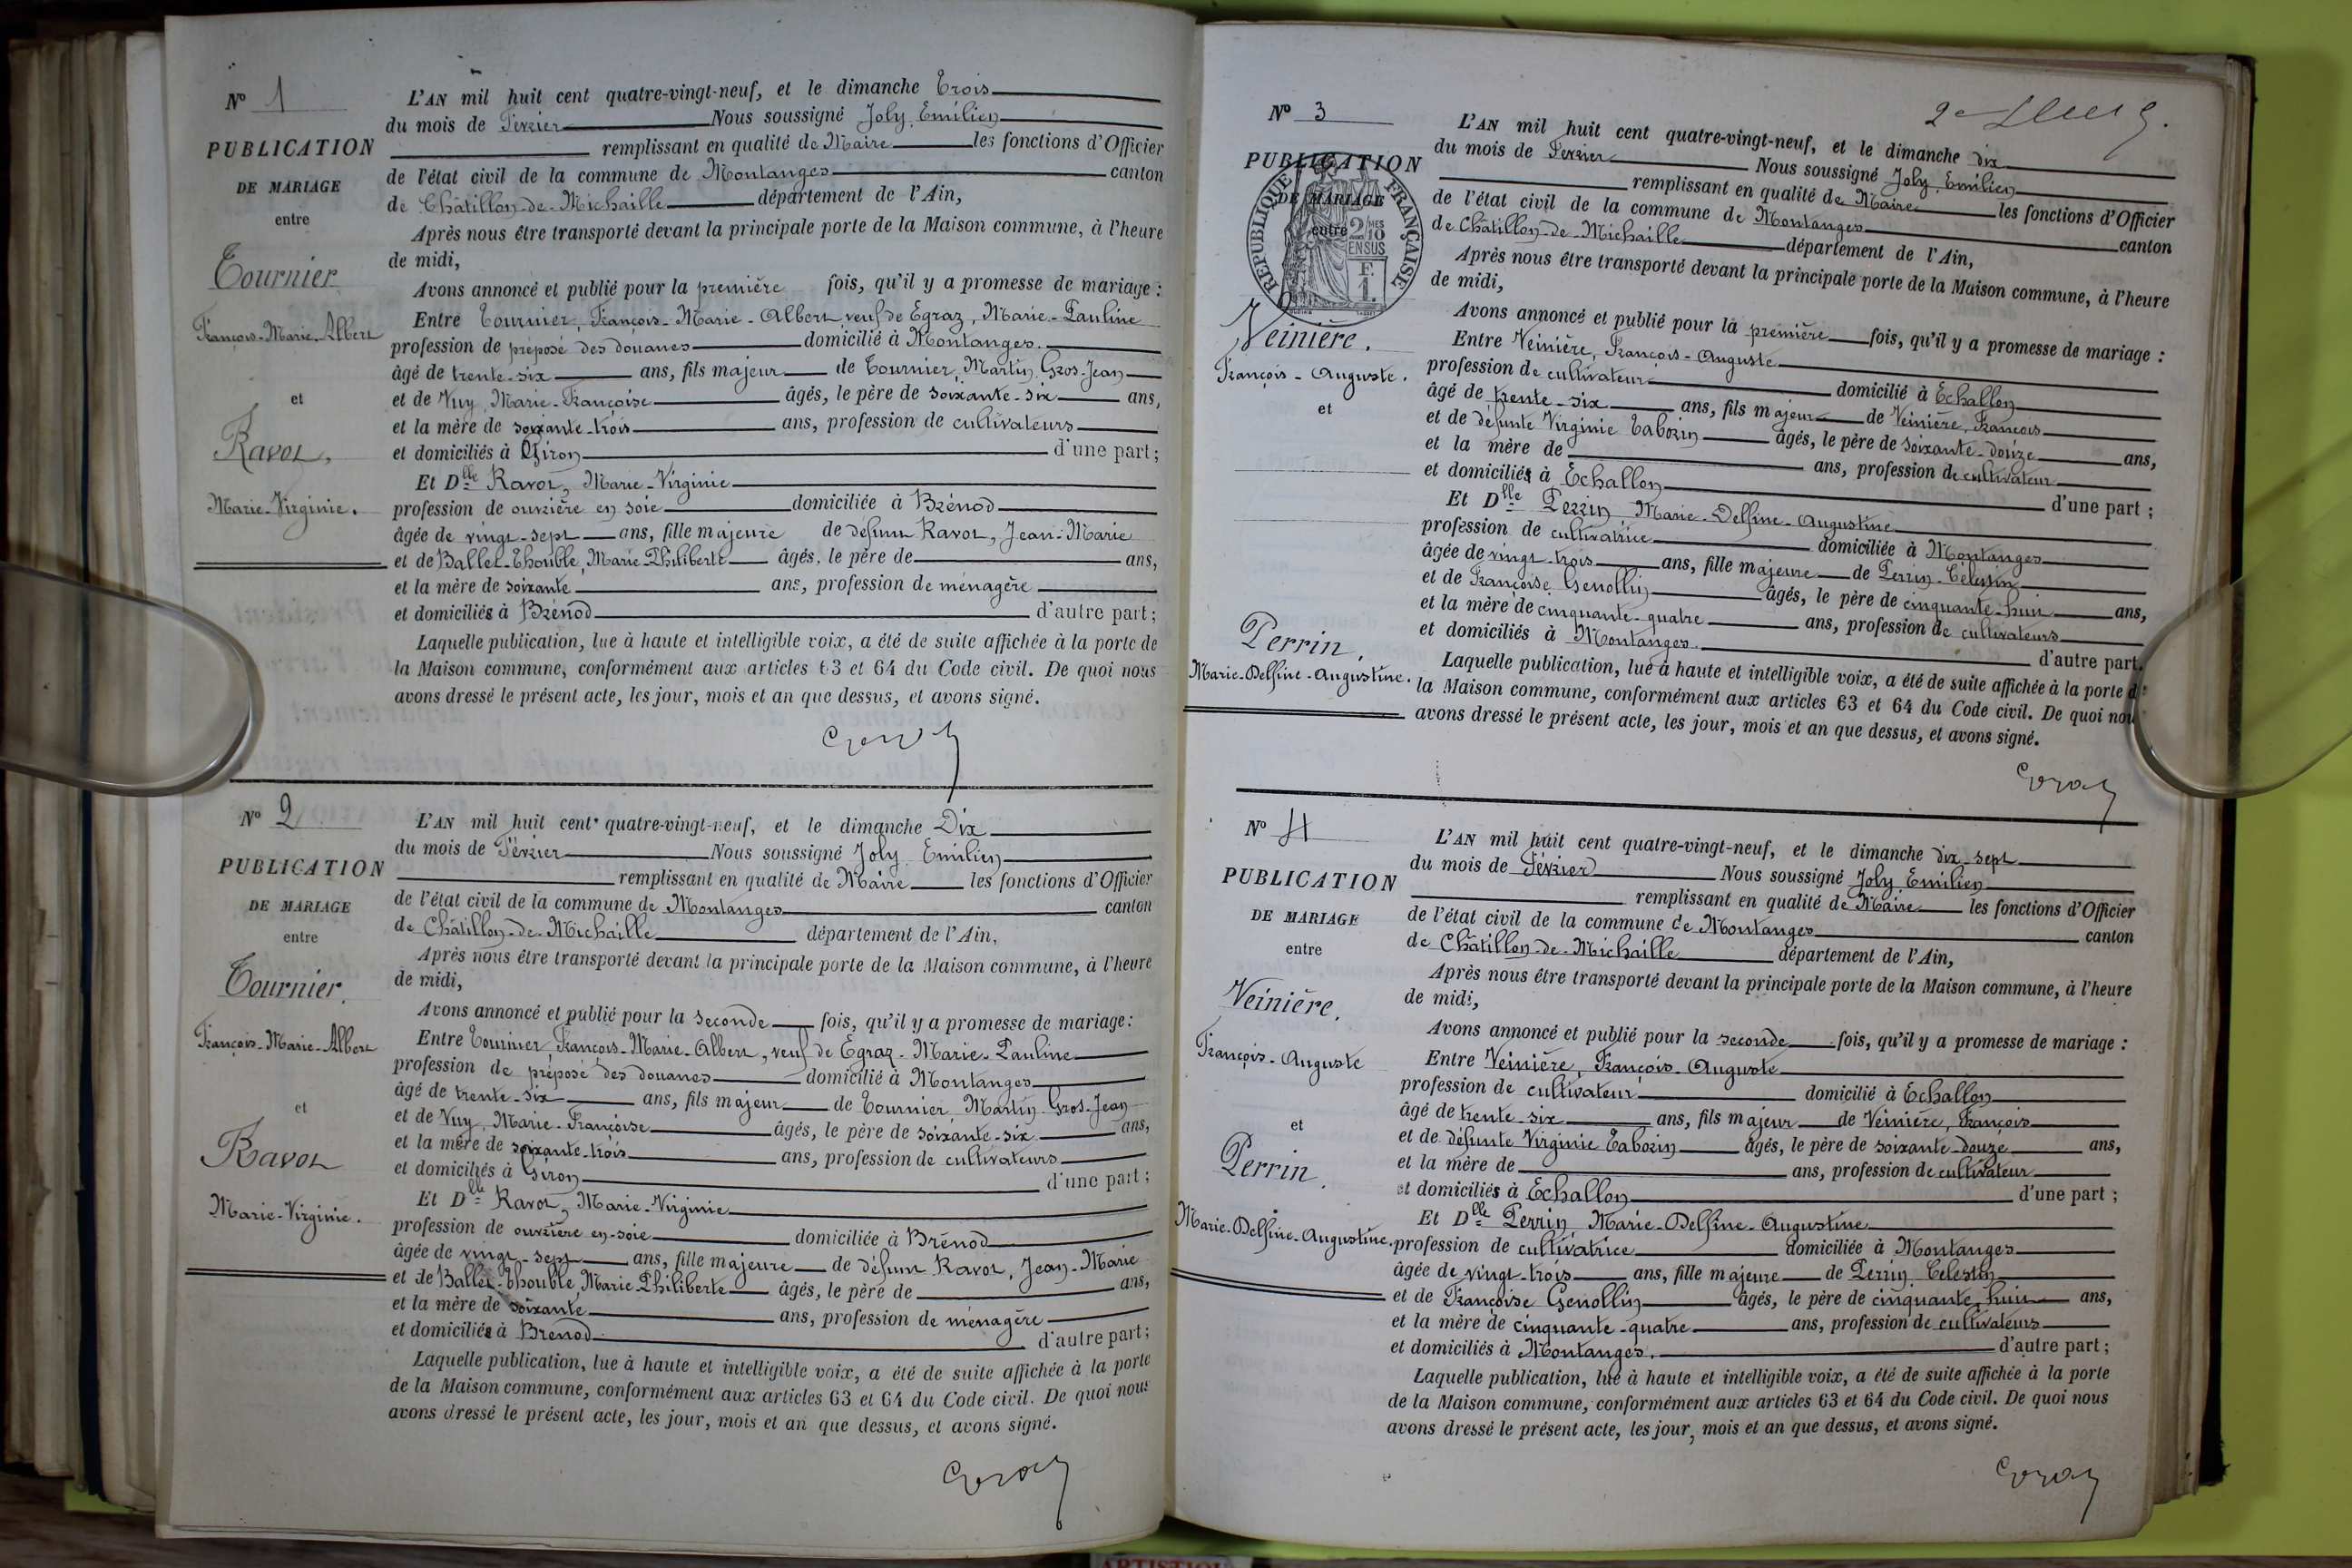 N° 1
PUBLICATION
DE MARIAGE
entre
Tournier
François-Marie-Albert
et
Ravot,
Marie-Virginie.
L'AN mil huit cent quatre-vingt-neuf, et le dimanche Trois
du mois de Février Nous soussigné Joly, Emilien
remplissant en qualité de Maire les fonctions d'Officier
de l'état civil de la commune de Montanges canton
de Châtillon-de-Michaille département de l'Ain,
Après nous être transporté devant la principale porte de la Maison commune, à l'heure
de midi,
Avons annoncé et publié pour la première fois, qu'il y a promesse de mariage :
Entre Tournier, François-Marie-Albert veuf de Egraz, Marie-Pauline
profession de préposé des douanes domicilié à Montanges.
âgé de trente-six ans, fils majeur de Tournier, Martin Gros-Jean
et de Vuy, Marie-Françoise âgés, le père de soixante-six ans,
et la mère de soixante-trois ans, profession de cultivateurs
et domiciliés à Giron d'une part;
Et Dlle Ravot, Marie-Virginie
profession de ouvrière en soie domiciliée à Brénod
âgée de vingt-sept ans, fille majeure de défunt Ravot, Jean-Marie
et de Ballet-Thouble, Marie-Philiberte âgés, le père de ans,
et la mère de soixante ans, profession de ménagère
et domiciliés à Brénod d'autre part;
Laquelle publication, lue à haute et intelligible voix, a été de suite affichée à la porte de
la Maison commune, conformément aux articles 63 et 64 du Code civil. De quoi nous
avons dressé le présent acte, les jour, mois et an que dessus, et avons signé.
N° 2
PUBLICATION
DE MARIAGE
entre
Tournier,
François-Marie-Albert
et
Ravot
Marie-Virginie.
L'AN mil huit cent quatre-vingt-neuf, et le dimanche Dix
du mois de Février Nous soussigné Joly Emilien
remplissant en qualité de Maire les fonctions d'Officier
de l'état civil de la commune de Montanges canton
de Châtillon-de-Michaille département de l'Ain,
Après nous être transporté devant la principale porte de la Maison commune, à l'heure
de midi,
Avons annoncé et publié pour la seconde fois, qu'il y a promesse de mariage :
Entre Tournier François-Marie-Albert, veuf de Egraz-Marie-Pauline
profession de préposé des douanes domicilié à Montanges
âgé de trente-six ans, fils majeur de Tournier Martin Gros-Jean
et de Vuy, Marie-Françoise âgés, le père de soixante-six ans,
et la mère de soixante-trois ans, profession de cultivateurs
et domiciliés à Giron d'une part;
Et Dlle Ravot, Marie-Virginie
profession de ouvrière en-soie domiciliée à Brénod
âgée de vingt-sept ans, fille majeure de défunt Ravot, Jean-Marie
et de Ballet-Thouble, Marie-Philiberte âgés, le père de ans,
et la mère de soixante ans, profession de ménagère
et domiciliés à Brénod d'autre part;
Laquelle publication, lue à haute et intelligible voix, a été de suite affichée à la porte
de la Maison commune, conformément aux articles 63 et 64 du Code civil. De quoi nous
avons dressé le présent acte, les jour, mois et an que dessus, et avons signé.
N° 3
PUBLICATION
DE MARIAGE
entre
RÉPUBLIQUE FRANÇAISE
2/10
EN SUS
F.
1.
Veinière.
François-Auguste.
et
Perrin,
Marie-Delfine-Augustine.
L'AN mil huit cent quatre-vingt-neuf, et le dimanche dix
du mois de Février Nous soussigné Joly, Emilien
remplissant en qualité de Maire les fonctions d'Officier
de l'état civil de la commune de Montanges canton
de Châtillon-de-Michaille département de l'Ain,
Après nous être transporté devant la principale porte de la Maison commune, à l'heure
de midi,
Avons annoncé et publié pour la première fois, qu'il y a promesse de mariage :
Entre Veinière, François-Auguste
profession de cultivateur domicilié à Echallon
âgé de trente-six ans, fils majeur de Veinière, François
et de défunte Virginie Taborin âgés, le père de soixante-douze ans,
et la mère de ans, profession de cultivateur
et domiciliés à Echallon d'une part ;
Et Dlle Perrin Marie-Delfine-Augustine
profession de cultivatrice domiciliée à Montanges
âgée de vingt-trois ans, fille majeure de Perrin-Célestin
et de Françoise Genollin âgés, le père de cinquante-huit ans,
et la mère de cinquante-quatre ans, profession de cultivateurs
et domiciliés à Montanges. d'autre part.
Laquelle publication, lue à haute et intelligible voix, a été de suite affichée à la porte d
la Maison commune, conformément aux articles 63 et 64 du Code civil. De quoi nou
avons dressé le présent acte, les jour, mois et an que dessus, et avons signé.
N° 4
PUBLICATION
DE MARIAGE
entre
Veinière.
François-Auguste
et
Perrin.
Marie-Delfine-Augustine.
L'AN mil huit cent quatre-vingt-neuf, et le dimanche dix-sept
du mois de Février Nous soussigné Joly, Emilien
remplissant en qualité de Maire les fonctions d'Officier
de l'état civil de la commune de Montanges canton
de Châtillon-de-Michaille département de l'Ain,
Après nous être transporté devant la principale porte de la Maison commune, à l'heure
de midi,
Avons annoncé et publié pour la seconde fois, qu'il y a promesse de mariage :
Entre Veinière, François-Auguste
profession de cultivateur domicilié à Echallon
âgé de trente-six ans, fils majeur de Veinière, François
et de défunte Virginie Taborin âgés, le père de soixante-douze ans,
et la mère de ans, profession de cultivateur
et domiciliés à Echallon d'une part ;
Et Dlle Perrin Marie-Delfine-Augustine
profession de cultivatrice domiciliée à Montanges
âgée de vingt-trois ans, fille majeure de Perrin Célestin
et de Françoise Genollin âgés, le père de cinquante-huit ans,
et la mère de cinquante-quatre ans, profession de cultivateurs
et domiciliés à Montanges. d'autre part ;
Laquelle publication, lue à haute et intelligible voix, a été de suite affichée à la porte
de la Maison commune, conformément aux articles 63 et 64 du Code civil. De quoi nous
avons dressé le présent acte, les jour, mois et an que dessus, et avons signé.